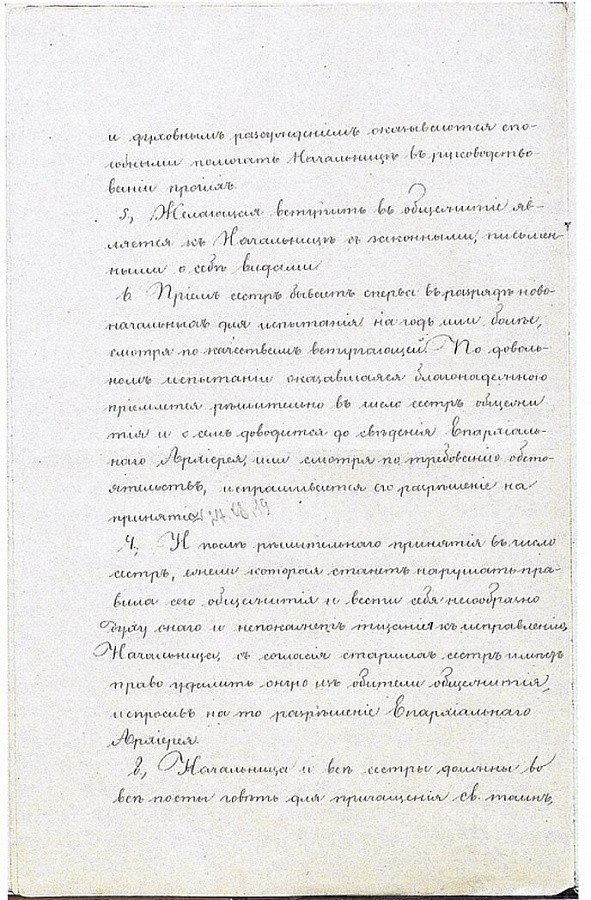 и духовнымъ разсужденіемъ оказываются спо-
собными помогать Начальницѣ въ руководство-
ваніи прочихъ.
5., Желающая вступить въ общежитіе яв-
ляется къ Начальницѣ съ законными, письмен-
ными о себѣ видами
6. Пріемъ сестръ бываетъ сперва въ разрядъ ново-
начальныхъ для испытанія на годъ или болѣе,
смотря по качествамъ вступающей. По доволь-
номъ испытаніи оказавшаяся благонадежною
пріемлется рѣшительно въ число сестръ общежи
тія и о семъ доводится до свѣденія Епархіаль-
наго Архіерея, или смотря по требованію обсто-
ятельствъ, испрашивается его разрѣшеніе на
принятіе
7., И послѣ рѣшительнаго принятія въ число
сестръ, ежели которая станетъ нарушать пра-
вила сего общежитія и вести себя несообразно
духу онаго и непокажетъ тщанія къ исправленію,
Начальница, съ согласія старшихъ сестръ имѣетъ
право удалить оную изъ обители общежитія,
испросивъ на то разрѣшеніе Епархіальнаго
Архіерея.
8., Начальница и всѣ сестры должны во
всѣ посты говѣть для причащенія св. таинъ,